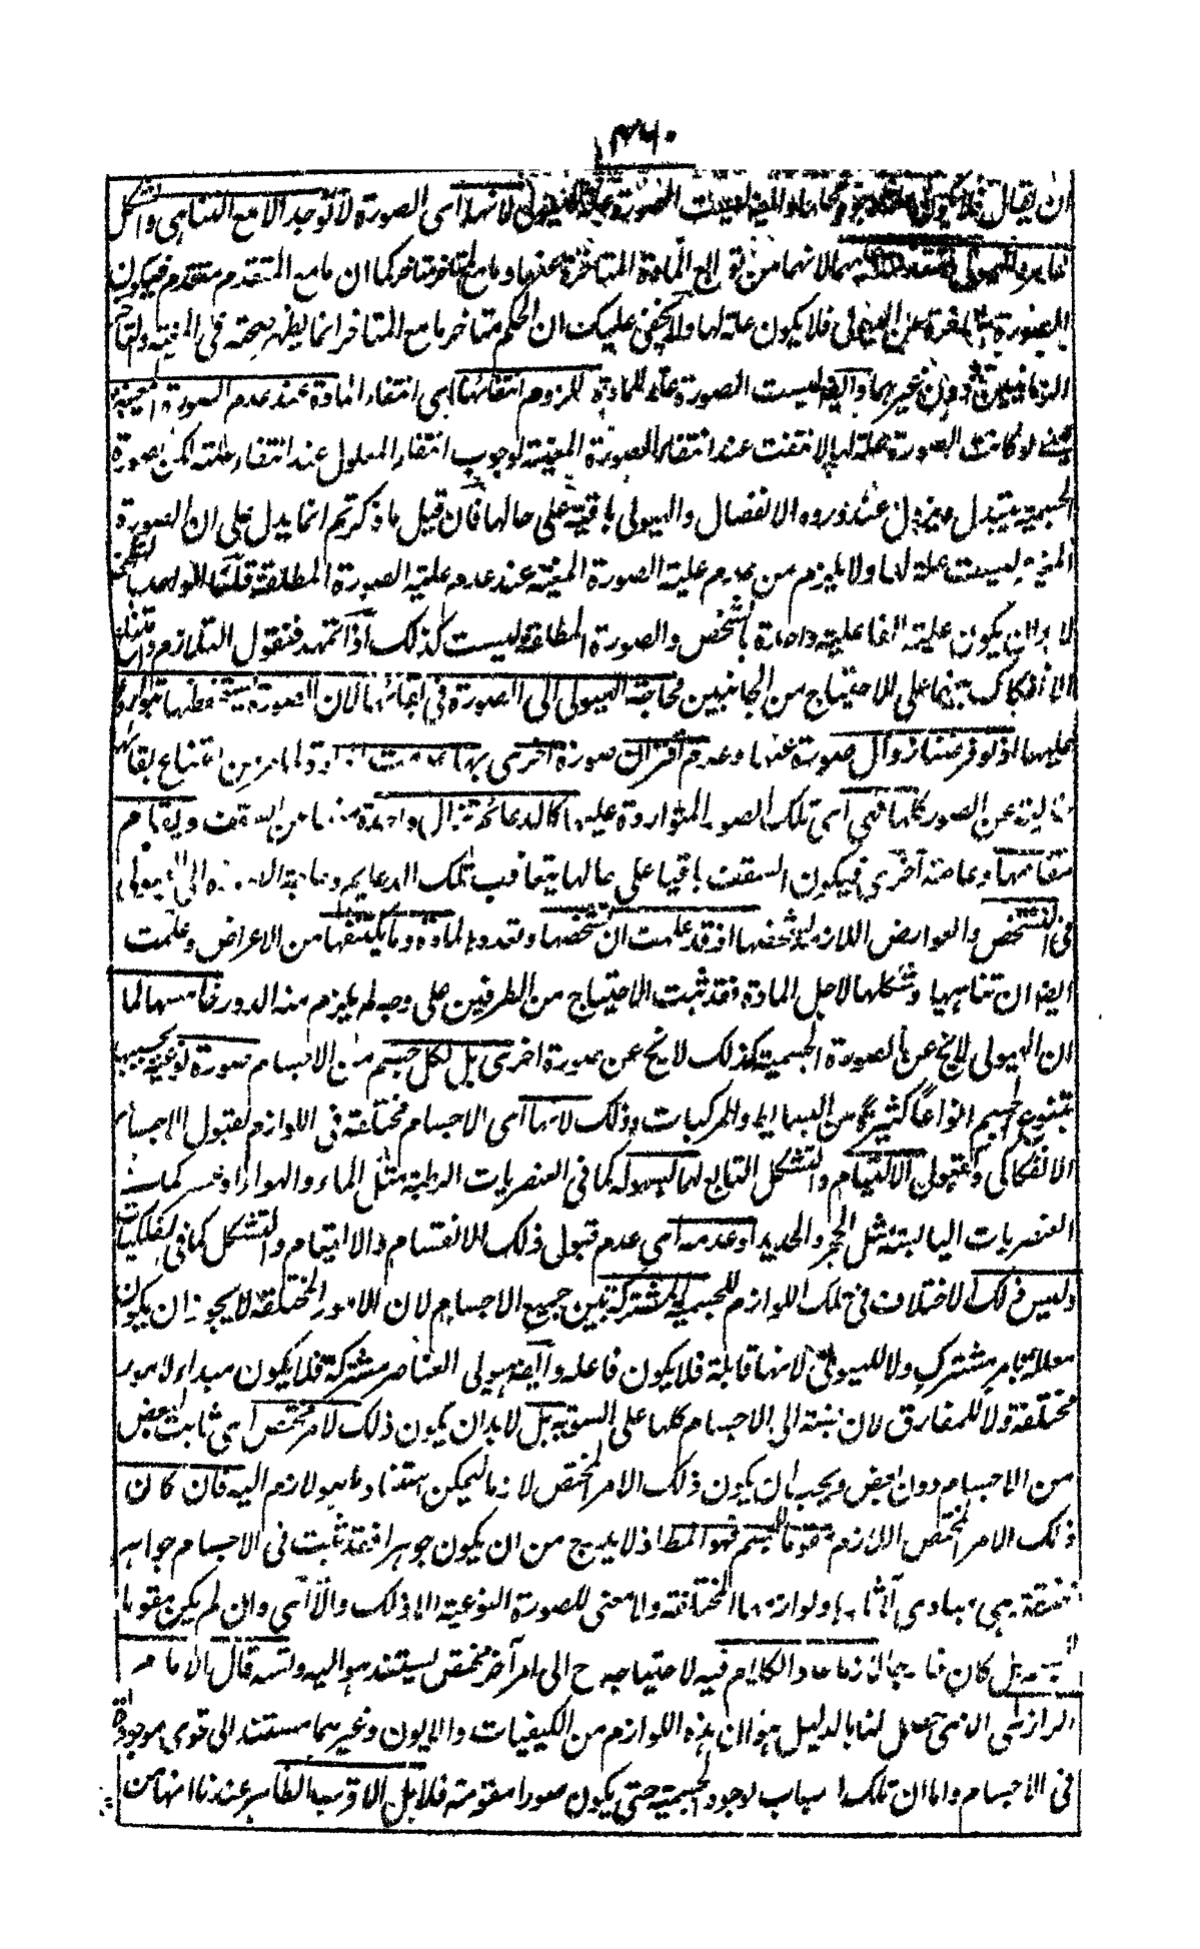 ٤٦٠
ان يقال فلا يكون ليست الصورة علة للهيولى لانها اى الصورة لا توجد الا مع التناهى والشكل
لانهما من توابع المادة المتأخرة عنها وما مع المتاخر متاخر كما ان ما مع المتقدم متقدم فيكون
الصورة متاخرة عن الهيولى فلا يكون علة لها ولا يخفى عليك ان الحكم متاخر ما مع المتاخر انما يظهر صحته فى المعية
الزمانيين دون غيرهما وايضا ليست الصورة علة للمادة للزوم انتفائها اى انتفاء المادة عند عدم الصورة المعينة
يعنے لو كانت الصورة علة لها لانتفت عند انتفاء الصورة المعينة لوجوب انتفاء المعلول عند انتفاء علته لكن الصورة
الجسمية يتبدل ويزول عند ورود الانفصال والهيولى باقية على حالها فان قيل ما ذكرتم انما يدل على ان الصورة
المعينة ليست علة لها ولا يلزم من عدم علية الصورة المعينة عند عدم علية الصورة المطلقة قلنا الواحد بالشخص
لا بد ان يكون علية الفاعلية واحدة بالشخص والصورة المطلقة ليست كذلك اذا تمهد فنقول التلازم وامتناع
الانفكاك بينهما على الاحتياج من الجانبين فحاجة الهيولى الى الصورة فى بقائها لان الصورة يستحفظها بتواردها
عليها اذ لو فرضنا زوال صورة عنها وعدم اقتران صورة اخرى بها عدمت المادة لما مر من امتناع بقائها
خالية عن الصور كلها فهى اى تلك الصور المتواردة عليها كالدعائم تزال واحدة منها من السقف ويقام
مقامها دعامة اخرى فيكون السقف باقيا على حالها بتعاقب تلك الدعايم وحاجة الصورة الى الهيولى
فى التشخص والعوارض اللازمة لتشخصها اذ قد علمت ان تشخصها وتعدد بالمادة وما يكتنفها من الاعراض وعلمت
ايضا ان تناهيها وشكلها لاجل المادة فقد ثبت الاحتياج من الطرفين على وجه لم يلزم منه الدور خامسها لما
ان الهيولى لا يخ عن الصورة الجسمية كذلك لا يخ عن صورة اخرى بل لكل جسم من الاجسام صورة نوعية بحسبها
يتنوع الجسم انواعا كثيرة من البسايط والمركبات وذلك لانها اى الاجسام مختلفة فى اللوازم لقبول الاجسام
الانفكاكى وقبول الالتيام والتشكل التابع لهما بسهولة كما فى العنصريات الرطبة مثل الماء والهواء او عسر كما فى
العنصريات اليابسة مثل الحجر والحديد او عدمه اى عدم قبول ذلك الانقسام والالتيام والتشكل كما فى الفلكيات
وليس ذلك الاختلاف فى تلك اللوازم للجسمية المشتركة بين جميع الاجسام لان الامور المختلفة لا يجوز ان يكون
معللة بامر مشترك ولا للهيولى لانها قابلة فلا يكون فاعله وايضا هيولى العناصر مشتركة فلا يكون مبداء لامور
مختلفة ولا للمفارق لان نسبته الى الاجسام كلها على السوية بل لا بد ان يكون ذلك لامر مختص اى ثابت لبعض
من الاجسام دون بعض ويجب ان يكون ذلك الامر المختص لازما ليمكن استناد ما هو لازم اليه فان كان
ذلك الامر المختص اللازم مقوما للجسم فهو المط اذ لا يخرج من ان يكون جوهرا فقد ثبت فى الاجسام جواهر
مختلفة هى مبادى آثارها ولوازمها المختلفة ولا معنى للصورة النوعية الا ذلك والا اى وان لم يكن مقوما
للجسم بل كان خارجا لازما عاد الكلام فيه لاحتياجه ح الى امر آخر مختص يستند هو اليه ولتسه قال الامام
الرازى الذى حصل لنا بالدليل هو ان هذه اللوازم من الكيفيات والايون وغيرهما مستند الى قوى موجودة
فى الاجسام واما ان تلك اسباب لوجود الجسمية حتى يكون صورا مقومة فلا بل الاقرب الظاهر عندنا انها من